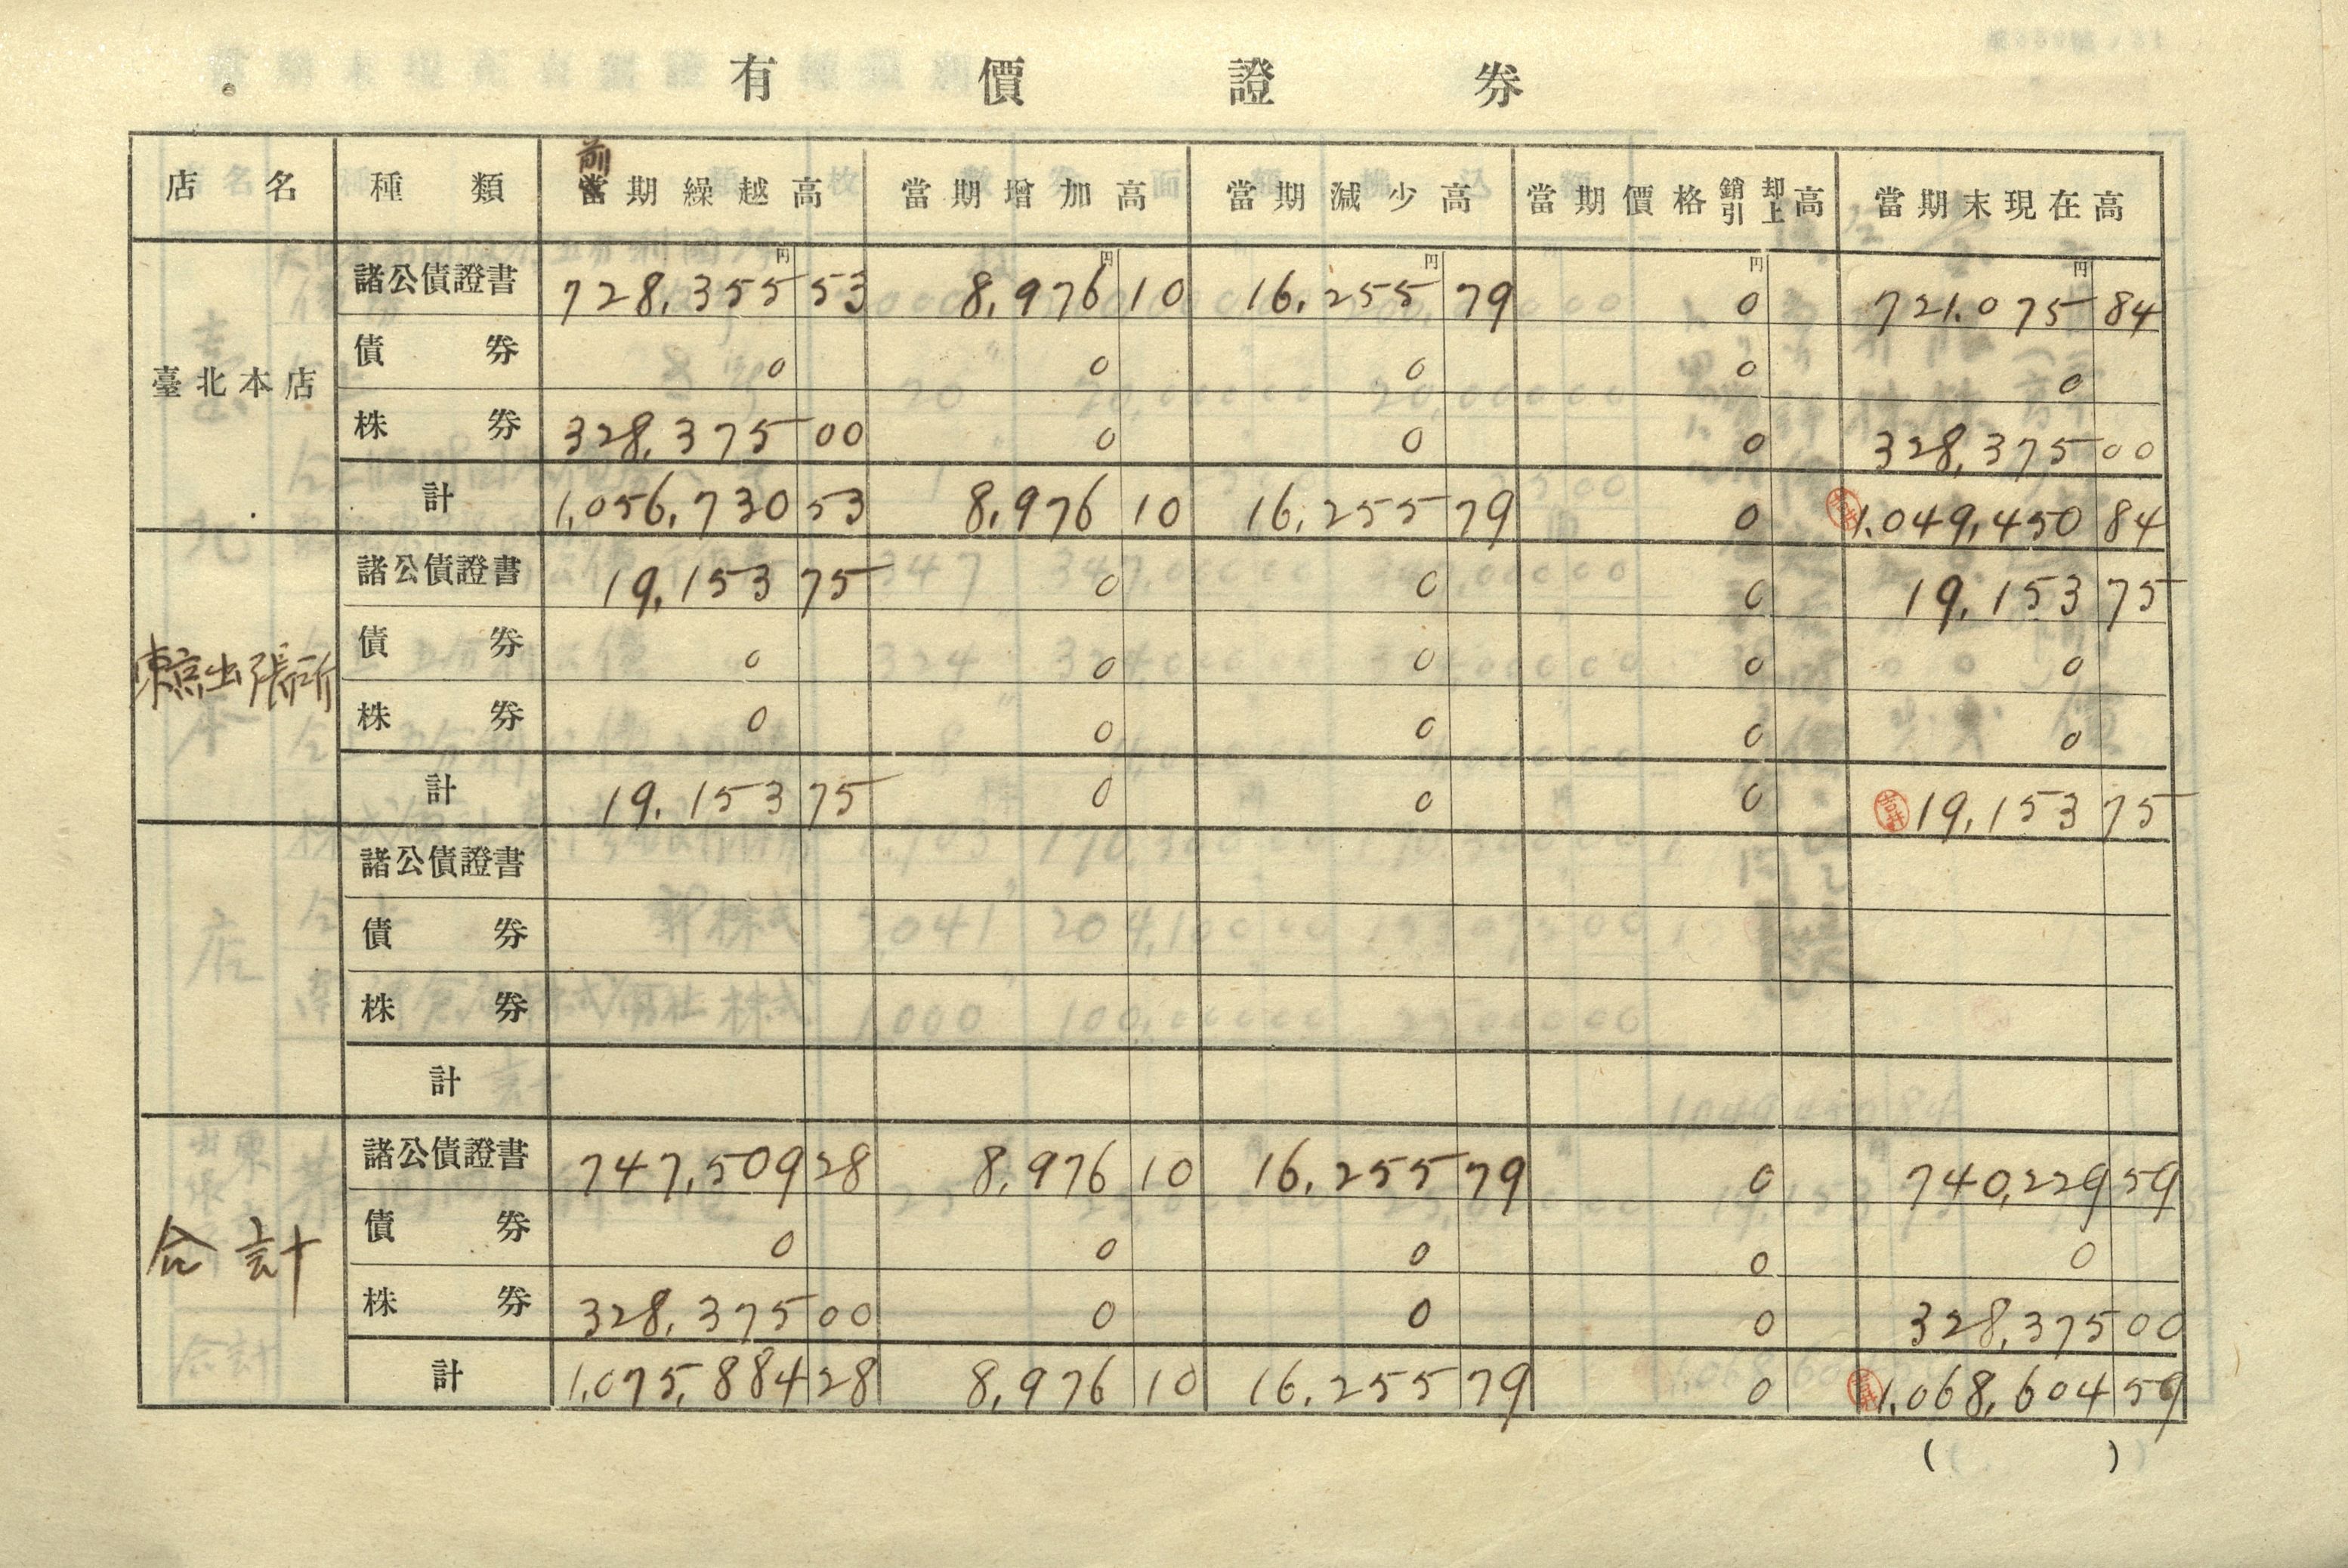 有價證券
店名 種類 前當期繰越高 當期增加高 當期減少高 當期價格銷却引上高 當期末現在高
円 円 円 円 円
臺北本店 諸公債證書 728,355 53 8,976 10 16,255 79 0 721,075 84
債券 0 0 0 0 0
株券 328,375 00 0 0 0 328,375 00
計 1,056,730 53 8,976 10 16,255 79 0 1,049,450 84
東京出張所 諸公債證書 19,153 75 0 0 0 19,153 75
債券 0 0 0 0 0
株券 0 0 0 0 0
計 19,153 75 0 0 0 19,153 75
諸公債證書
債券
株券
計
合計 諸公債證書 747,509 28 8,976 10 16,255 79 0 740,229 59
債券 0 0 0 0 0
株券 328,375 00 0 0 0 328,375 00
計 1,075,884 28 8,976 10 16,255 79 0 1,068,604 59
( )